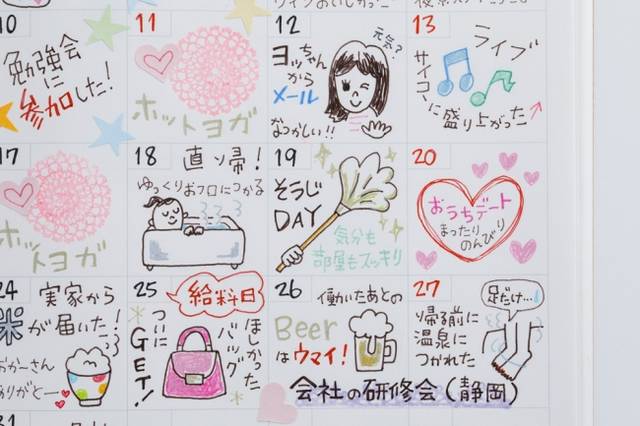 10
勉強会
に
参加した!
11
ホットヨガ
12
ヨッちゃん
から
メール
元気?
なつかしい!!
13
ライブ
サイコーに盛り上がった
17
ホットヨガ
18
直り帰!
ゆっくりおフロにつかる
19
そうじ
DAY
気分も
部屋もスッキリ
20
おうちデート
まったり
のんびり
24
実家から
米が届いた!
おかーさん
ありがとー
25
給料日
ほしかった
バッグ
ついに
GET!
26
働いたあとの
Beer
はウマイ!
27
足だけ…
帰る前に
温泉に
つかれた
会社の研修会(静岡)
31